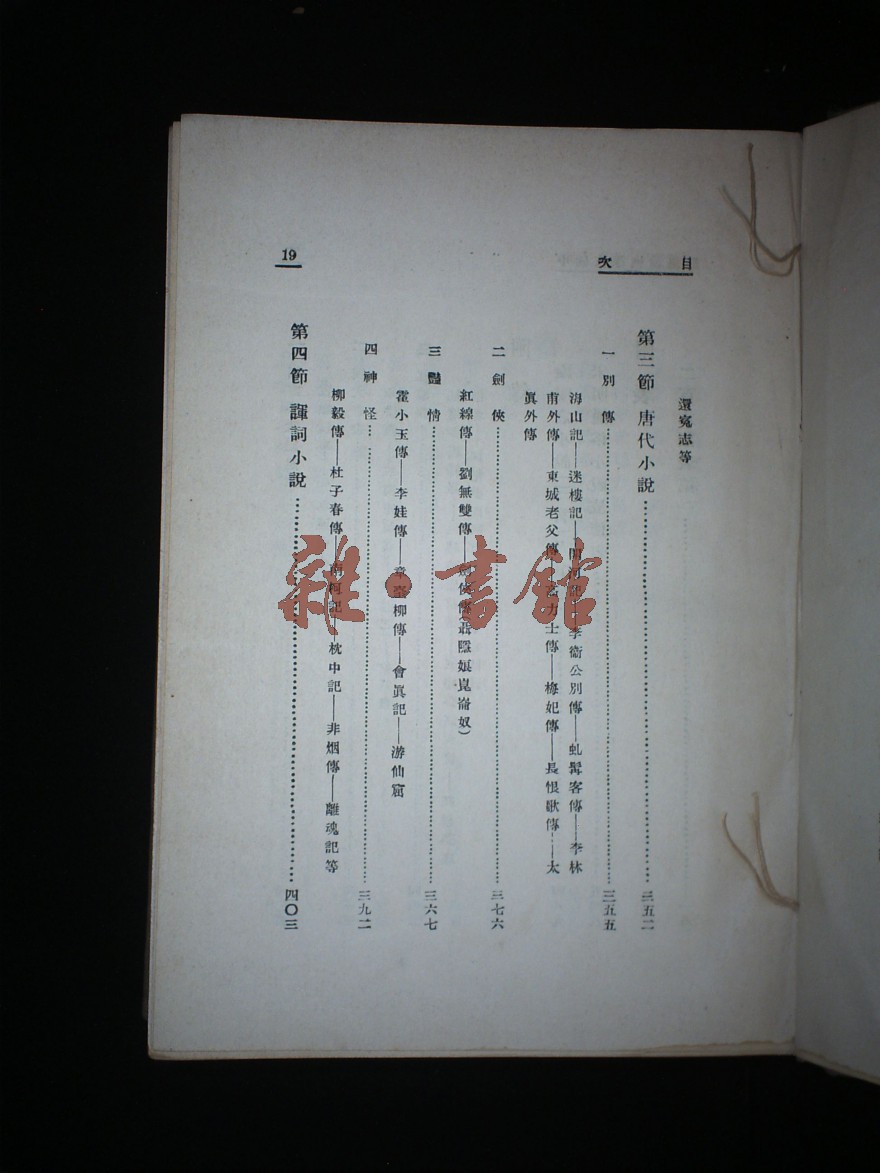 目次
19
還寃志等
第三節 唐代小說……三五二
一 別傳……三五五
海山記——迷樓記——開河記——李衞公別傳——虬髯客傳——李林
甫外傳——東城老父傳——高力士傳——梅妃傳——長恨歌傳——太
眞外傳
二 劍俠……三七六
紅線傳——劉無雙傳——劍俠傳(聶隱娘崑崙奴)
三 豔情……三六七
霍小玉傳——李娃傳——章臺柳傳——會眞記——游仙窟
四 神怪……三九二
柳毅傳——杜子春傳——南柯記——枕中記——非烟傳——離魂記等
第四節 諢詞小說……四〇三
雜·書館